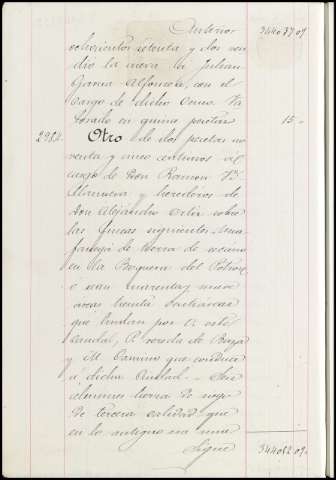 Anterior 344037 09.
ochocientos setenta y dos ven
dio la nueva a Julian
Garcia Alfonsea, con el
cargo de dicho Censo Va
lorado en quince pesetas 15 -
2984. Otro de dos pesetas no
venta y cinco centimos a
cargo de Don Ramon
Manuera y herederos de
Don Alejandro Ortiz sobre
las fincas siguientes. Una
fanega de tierra de secano
en la Boquera del Potron
o sean cuarenta y nueve
areas treinta centiareas
que lindan por O. este
caudal, P. vereda de
y M. Camino que conduce
a dicha Ciudad. - Seis
celemines tierra de riego
de tercera calidad que
en lo antiguo era una
Sigue 344052 09.